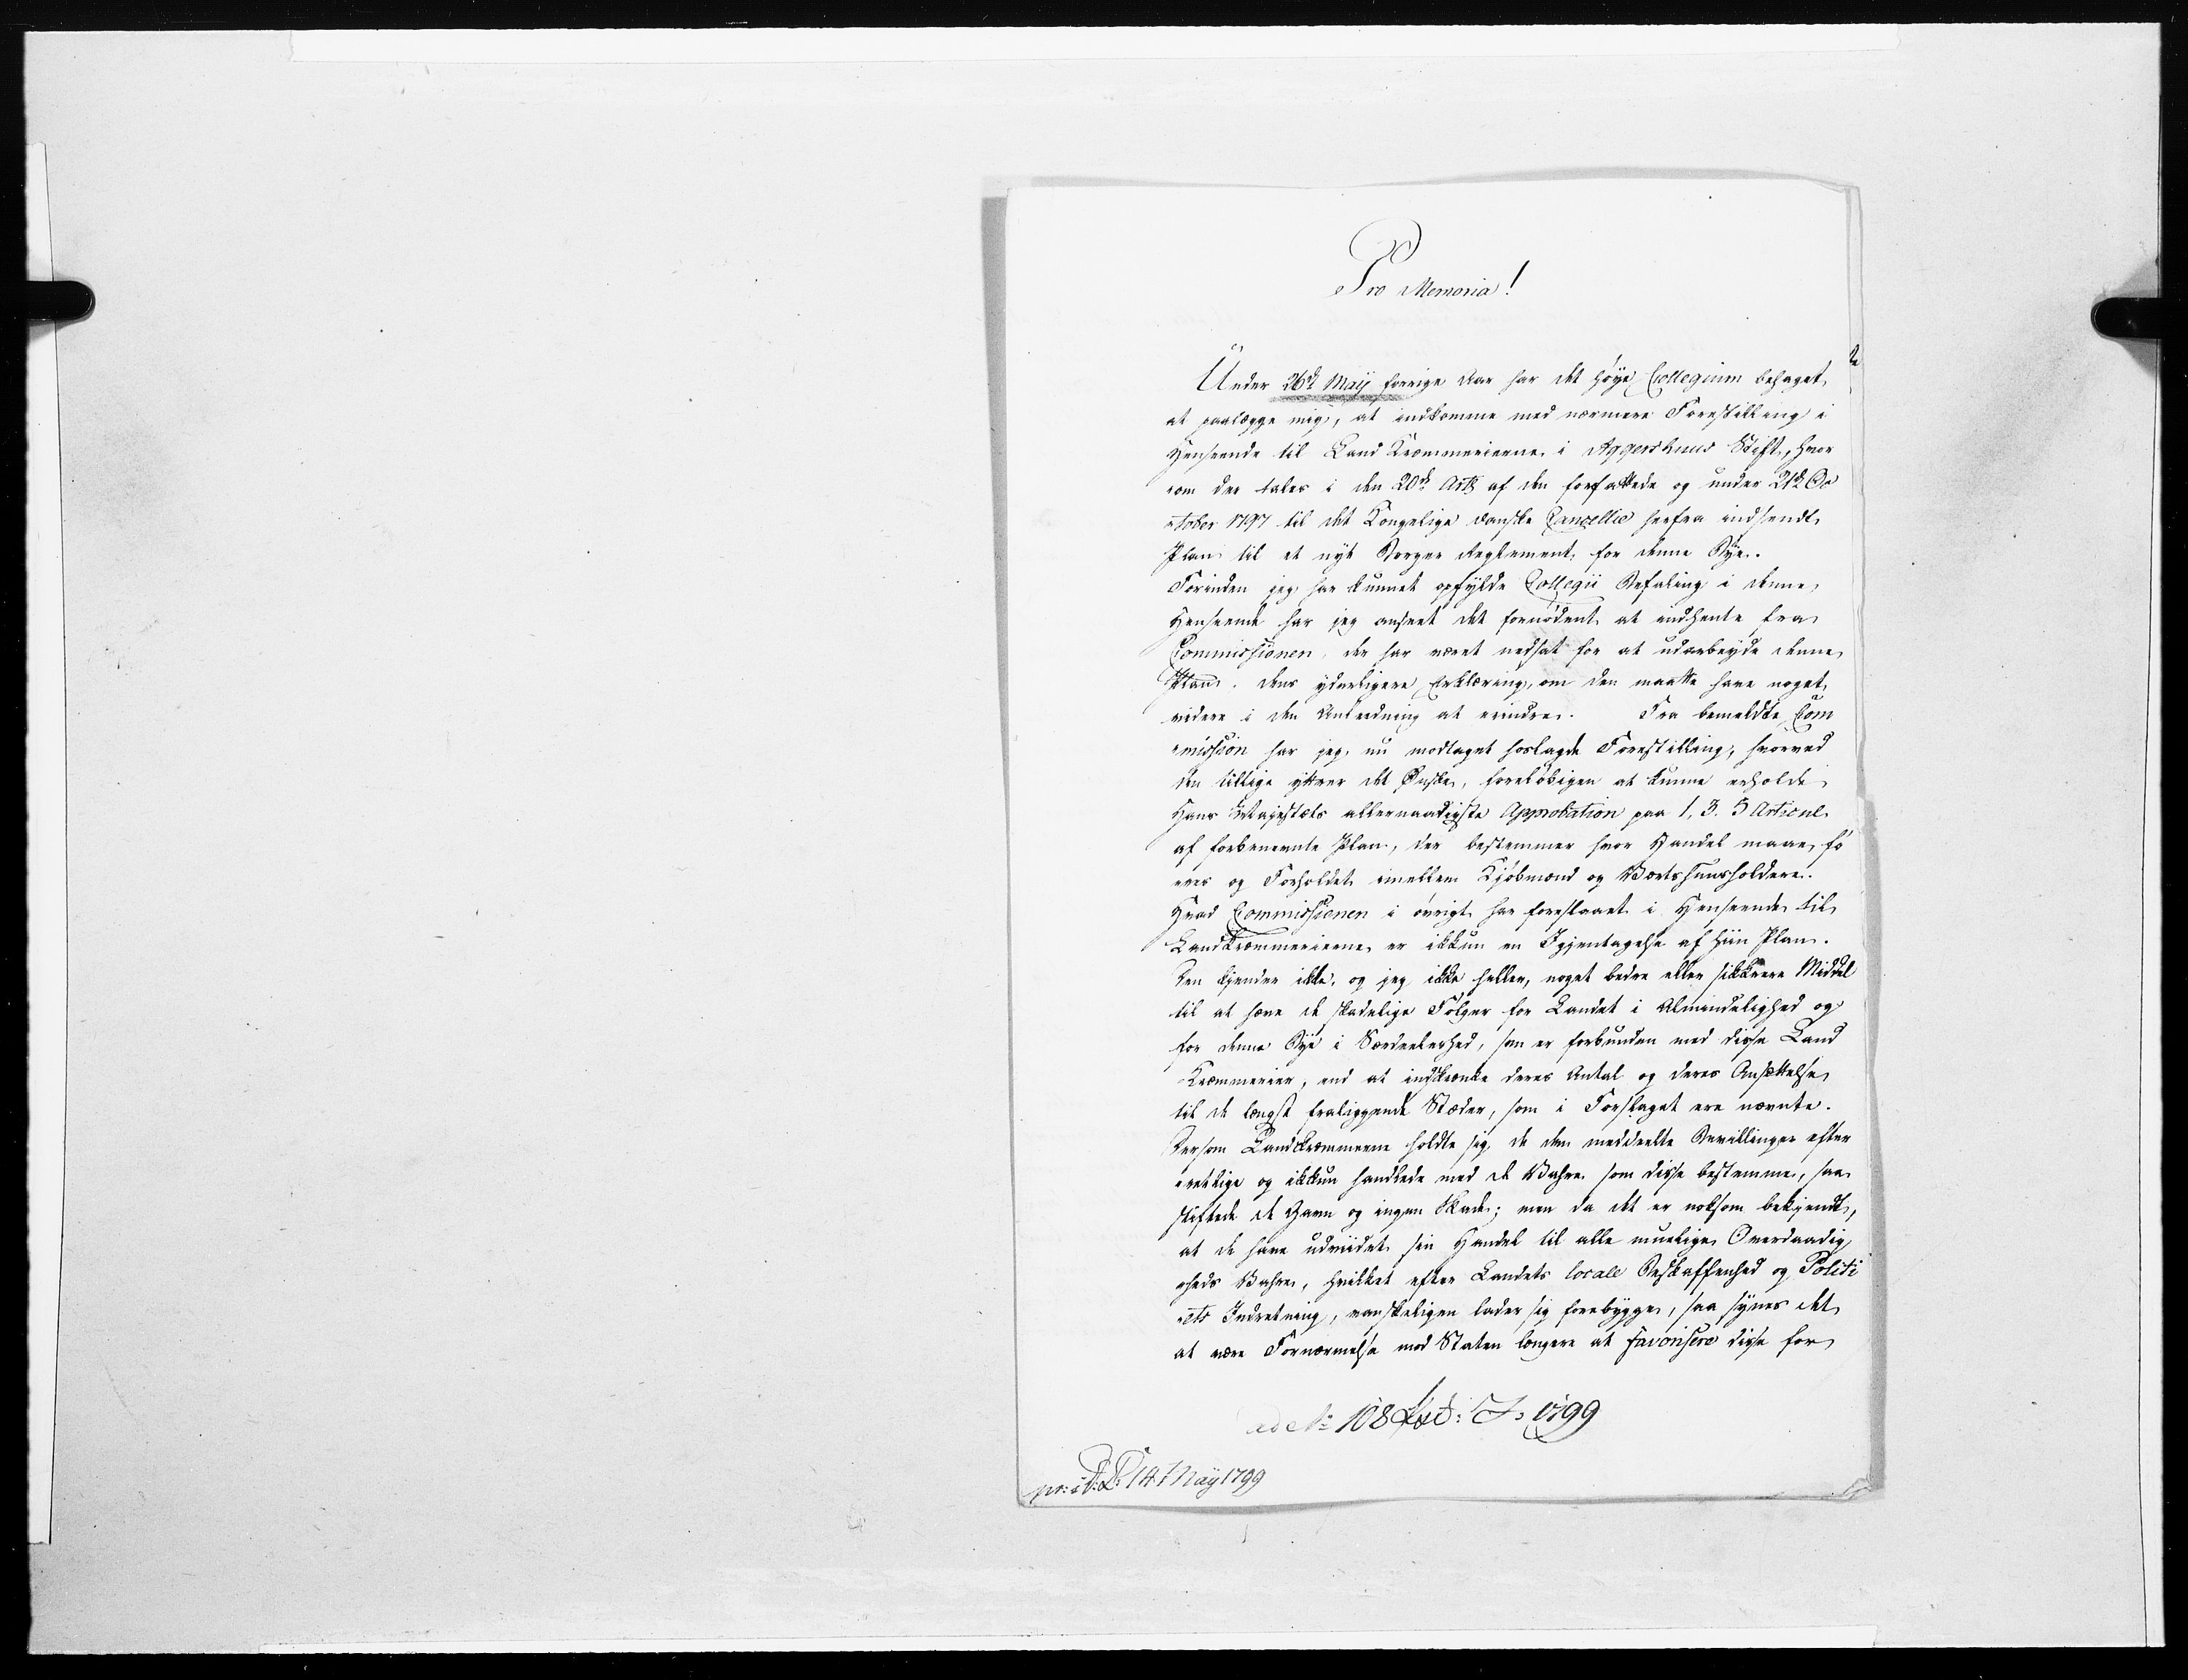 Pro Memoria!
Under 26de Maij forrige Aar har det høye Collegium behaget
at paalægge mig, at indkomme med nærmere Forestilling i
Henseende til Land Kræmmerierne i Aggershuus Stift, hvor
om der tales i den 20de Artk af den forfattede og under 21de Oc
tober 1797 til det Kongelige danske Cancellie herfra indsendte
Plan til et nyt Borger Reglement for denne Bye.
Forinden jeg har kunnet opfylde Collegii Befaling i denne
Henseende har jeg anseet det fornødent at indhente fra
Commissionen, der har været nedsat for at udarbeyde denne
Plan, dens yderligere Erklæring, om den maatte have noget
videre i den Anledning at erindre. Fra bemeldte Com
mission har jeg nu modtaget hoslagde Forestilling, hvorved
den tillige yttrer det Ønske, foreløbigen at kunne erholde
Hans Majestæts allernaadigste Approbation paa 1, 3. 5 Articul
af forbenevnte Plan, der bestemmer hvor Handel maae fø
res og Forholdet imellem Kjøbmænd og Vertshuusholdere.
Hvad Commissionen i øvrigt har foreslaaet i Henseende til
Landkræmmerierne er ikkun en Igjentagelse af hiin Plan.
Den kjender ikke, og jeg ikke heller, noget bedre eller sikkrere Middel
til at hæve de skadelige Følger for Landet i Almindelighed og
for denne Bye i Særdeeleshed, som er forbunden med disse Land
Kræmmerier, end at indskrænke deres Antal og deres Ansættelse
til de længst fraliggende Stæder, som i Forslaget ere nævnte.
Dersom Landkræmmerne holdte sig de dem meddeelte Bevillinger efter
rettelige og ikkun handlede med de Vahre som disse bestemme, saa
stiftede de Gavn og ingen Skade; men da det er noksom bekjendt,
at de have udviidet sin Handel til alle muelige Overdaadig
heds Vahre, hvilket efter Landets locale Beskaffenhed og Politi
ets Indretning, vanskeligen lader sig forebygge, saa synes det
at være Fornærmelse mod Staten længere at favorisere disse for
ad No 108 1799
14 Maÿ 1799